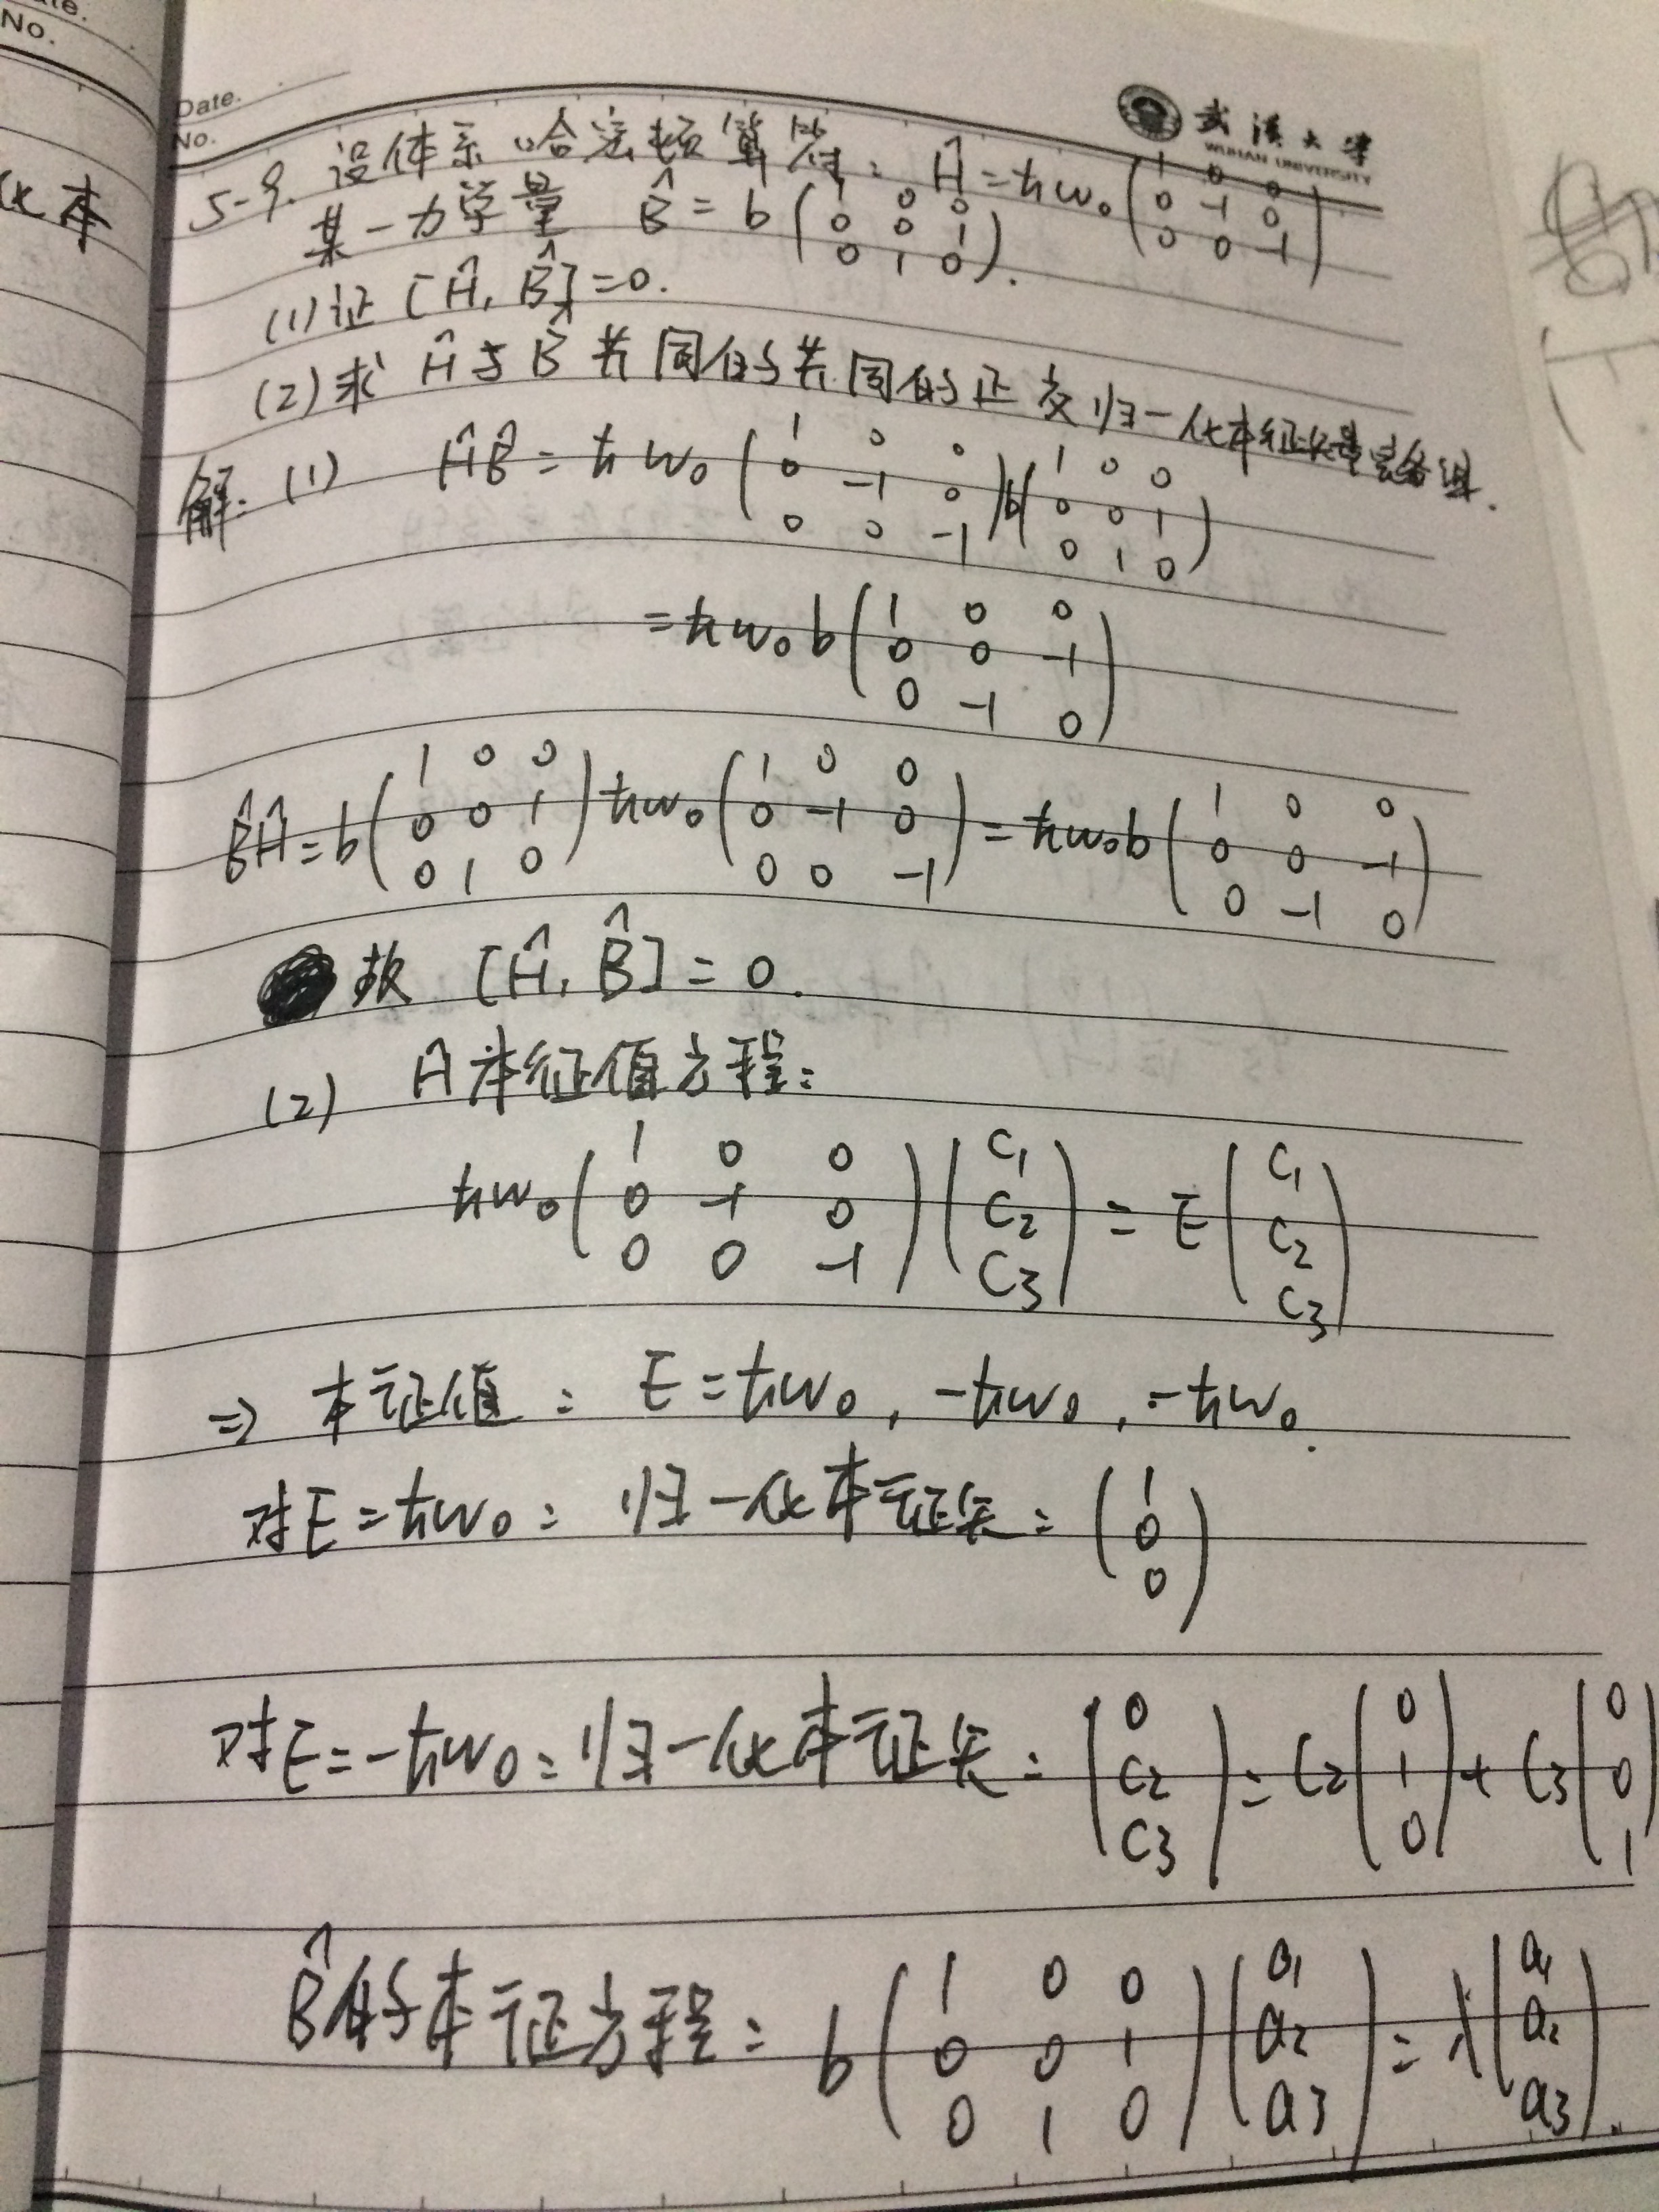 No.
化本
Date.
No.
武汉大学
WUHAN UNIVERSITY
5-9. 设体系哈密顿算符: Ĥ=ħw₀(1 0 0; 0 -1 0; 0 0 -1)
某一力学量 B̂=b(1 0 0; 0 0 1; 0 1 0).
(1)证[Ĥ, B̂]=0.
(2)求Ĥ与B̂共同的共同的正交归一化本征矢量完备组.
解: (1) ĤB̂=ħw₀(1 0 0; 0 -1 0; 0 0 -1)b(1 0 0; 0 0 1; 0 1 0)
=ħw₀b(1 0 0; 0 0 -1; 0 -1 0)
B̂Ĥ=b(1 0 0; 0 0 1; 0 1 0)ħw₀(1 0 0; 0 -1 0; 0 0 -1)=ħw₀b(1 0 0; 0 0 -1; 0 -1 0)
故 [Ĥ, B̂]=0.
(2) Ĥ本征值方程:
ħw₀(1 0 0; 0 -1 0; 0 0 -1)(C₁; C₂; C₃)=E(C₁; C₂; C₃)
⇒ 本征值: E=ħw₀, -ħw₀, -ħw₀.
对E=ħw₀: 归一化本征矢: (1; 0; 0)
对E=-ħw₀: 归一化本征矢: (0; C₂; C₃)=C₂(0; 1; 0)+C₃(0; 0; 1
B̂的本征方程: b(1 0 0; 0 0 1; 0 1 0)(a₁; a₂; a₃)=λ(a₁; a₂; a₃).